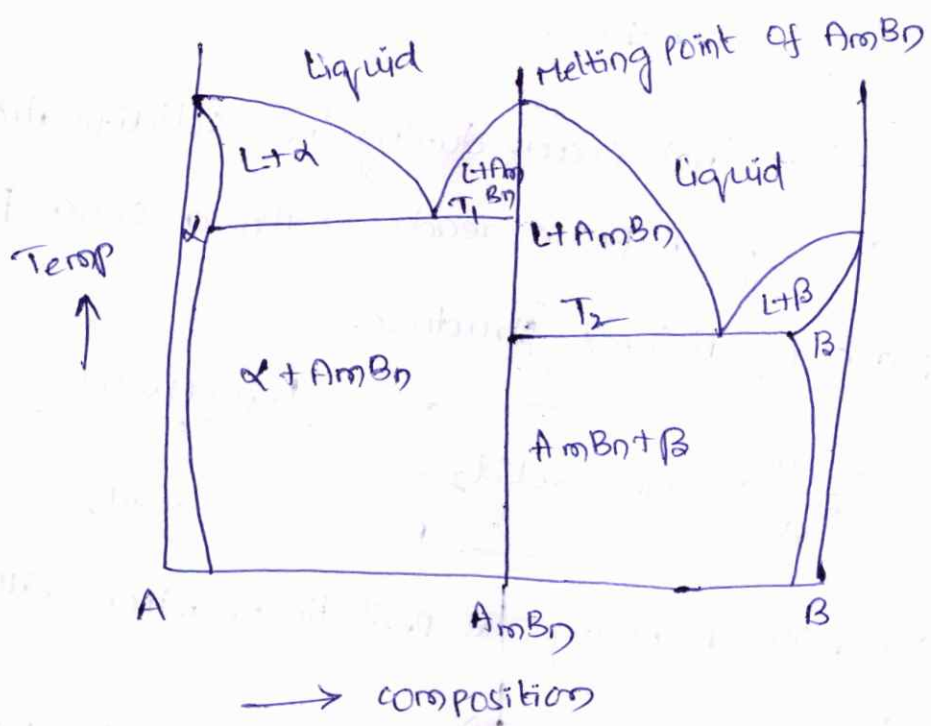 Liquid
Melting Point of AmBn
L+α
L+Am
Bn
T1
Liquid
α
L+AmBn
Temp
T2
L+β
β
α + AmBn
AmBn+β
A
AmBn
B
composition